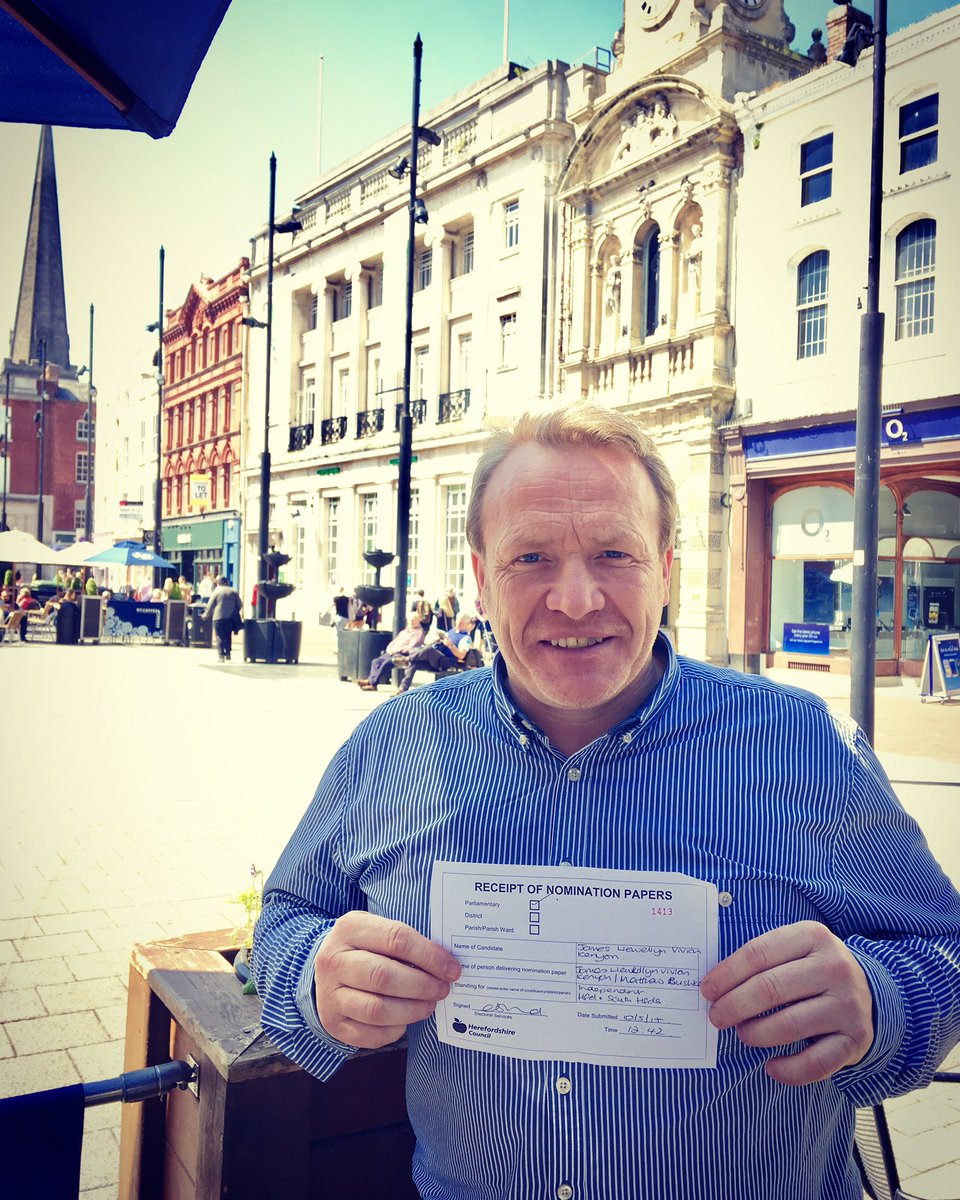 TO LET
O2
O2
RECEIPT OF NOMINATION PAPERS
Parliamentary
District
Parish/Parish Ward
1413
Name of Candidate James Llewellyn Vivian
Kenyon
Name of person delivering nomination paper James Llewellyn Vivian
Kenyon / Matthew
Standing for (please enter name of constituency/district/parish) Independent
Hfd & South Hfds
Signed
Electoral Services
Date Submitted 10/5/17
Time 12:42
Herefordshire
Council